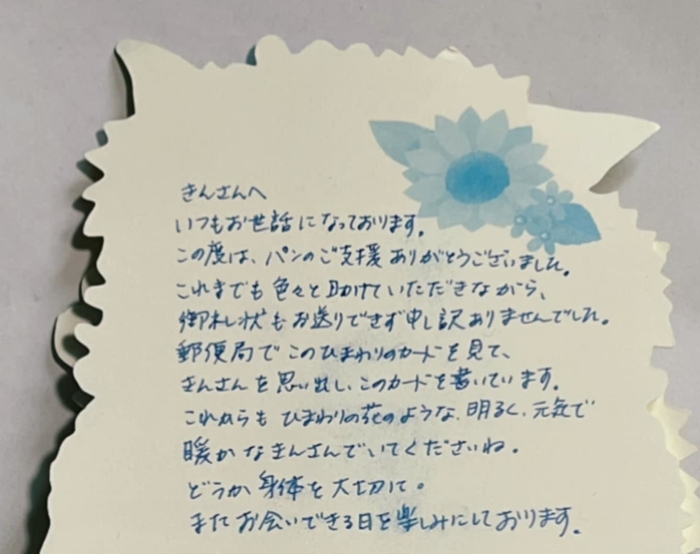 きんさんへ
いつもお世話になっております。
この度は、パンのご支援ありがとうございました。
これまでも色々と助けていただきながら、
御礼状もお送りできず申し訳ありませんでした。
郵便局でこのひまわりのカードを見て、
きんさんを思い出し、このカードを書いています。
これからもひまわりの花のような、明るく、元気で
暖かなきんさんでいてくださいね。
どうか身体を大切に。
またお会いできる日を楽しみにしております。